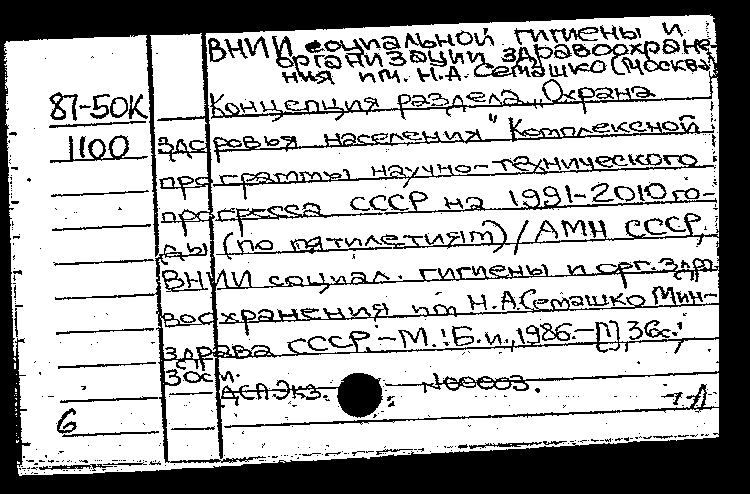 ВНИИ социальной гигиены и
организации здравоохране-
ния им. Н.А. Семашко (Москва)
87-50К Концепция раздела „Охрана
1100 здоровья населения" Комплексной
программы научно-технического
прогресса СССР на 1991-2010 го-
ды (по пятилетиям) / АМН СССР,
ВНИИ социал. гигиены и орг. здра
воохранения им Н.А.Семашко Мин-
здрава СССР. - М.: Б.и., 1986. - [1], 36с.;
30см.
ДСП. Экз. N00003.
6